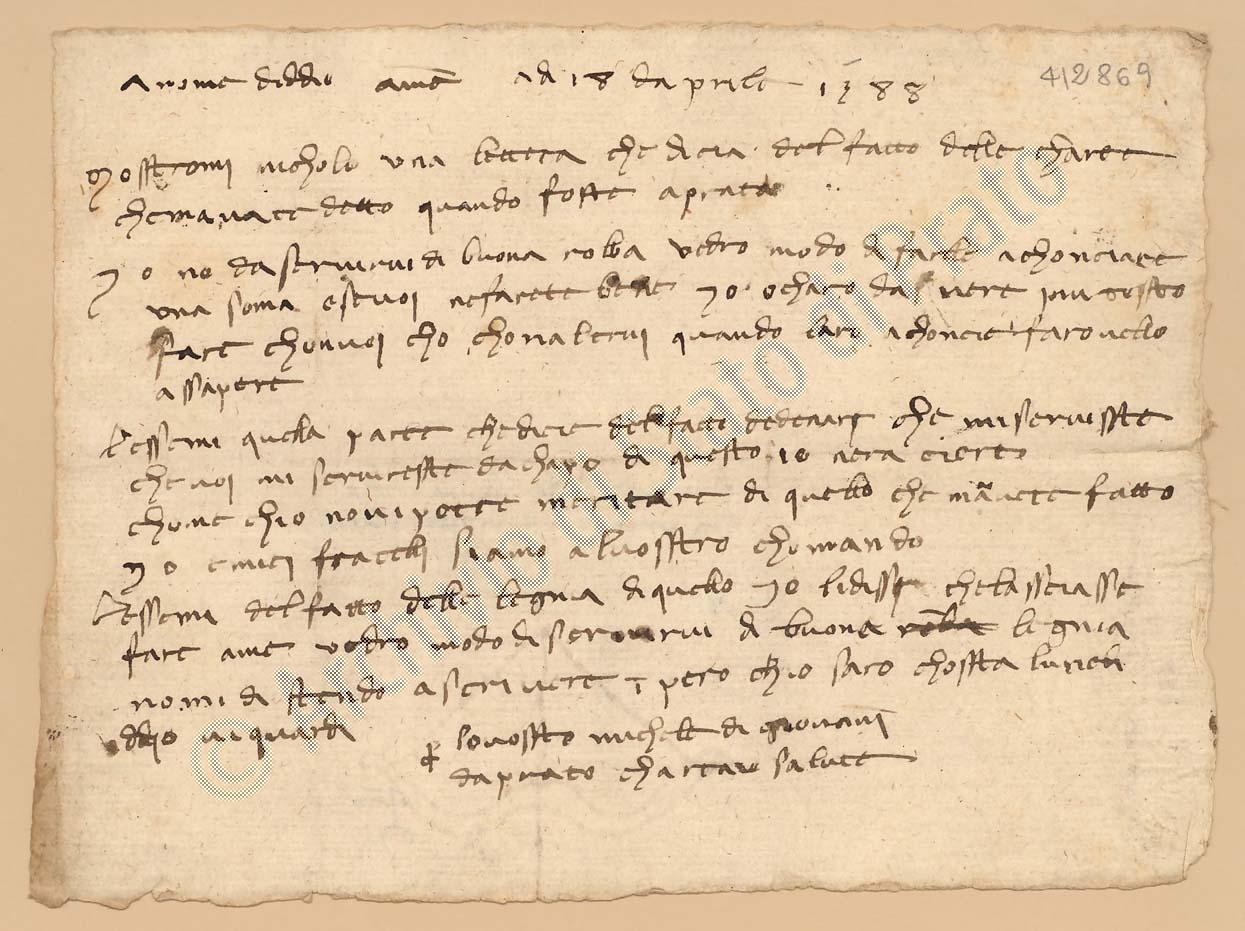 A nome di Dio ame adi 18 d aprile 1388
412869
Mosstromi nicholo una lettera che dicia del fatto delle charte
che m avate detto quando foste a prato
Io no da servirvi di buona robba vedro modo di farle achonciare
una soma e se voi ne farete bene Io o charo d avere piu tosto
fare chon voi cho chon altrui quando l aro achoncie farovello
assapere
Lessemi quella parte che dicie del fatto de denari che mi servisste
che voi mi serviresste da chapo di questo io n era cierto
chome ch io no vi potte meritare di quello che m avete fatto
Io e miei fratelli siamo al vosstro chomando
Lessemi del fatto delle legnia di quello Io li dissi che lassciasse
fare a me vedro modo di servirvi di buona robba legnia
no mi distendo a scrivere i pero ch io saro chossta lunedi
iddio vi guardi
p lo vosstro michele di giovani
da prato chartaio salute
© Archivio di Stato di Prato